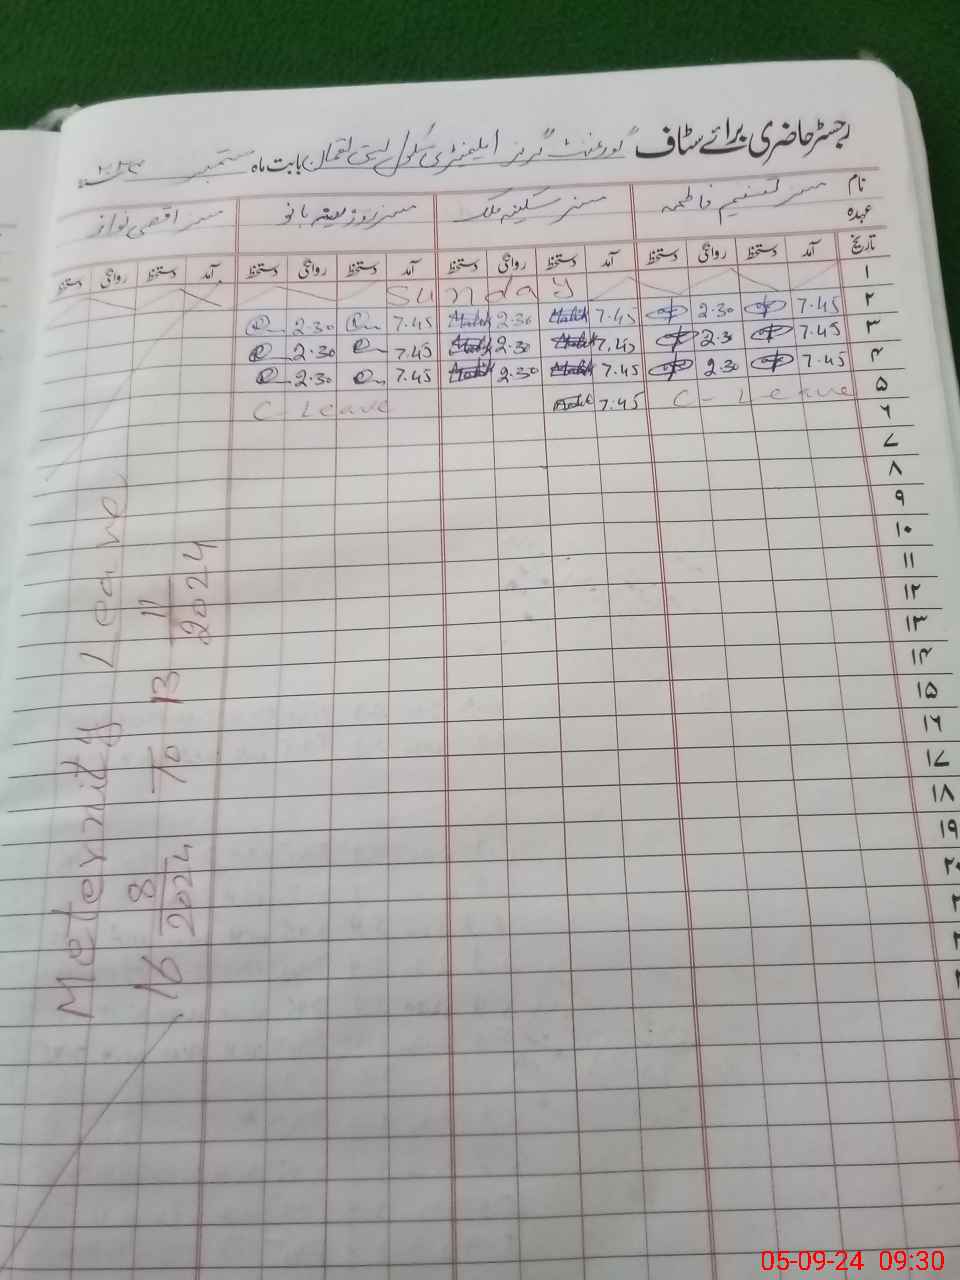 رجسٹر حاضری برائے سٹاف گورنمنٹ گرلز ایلیمنٹری سکول بستی لقمان بابت ماہ ستمبر
نام مسز تسنیم فاطمہ مسز سکینہ ملک مسز روزینہ بانو مسز اقصی نواز
عہدہ
تاریخ آمد دستخط روانگی دستخط آمد دستخط روانگی دستخط آمد دستخط روانگی دستخط آمد دستخط روانگی دستخط
۱ Sunday
۲ 7.45 2.30 7.45 2.30 7.45 2.30
۳ 7.45 2.30 7.45 2.30 7.45 2.30
۴ 7.45 2.30 7.45 2.30 7.45 2.30
۵ C-Leave 7.45 C-Leave
۶
۷
۸
۹
۱۰
۱۱
۱۲
۱۳
۱۴
۱۵
۱۶
۱۷
۱۸
۱۹
۲۰
Meternity Leave
16 8/2024 To 13 11/2024
05-09-24 09:30